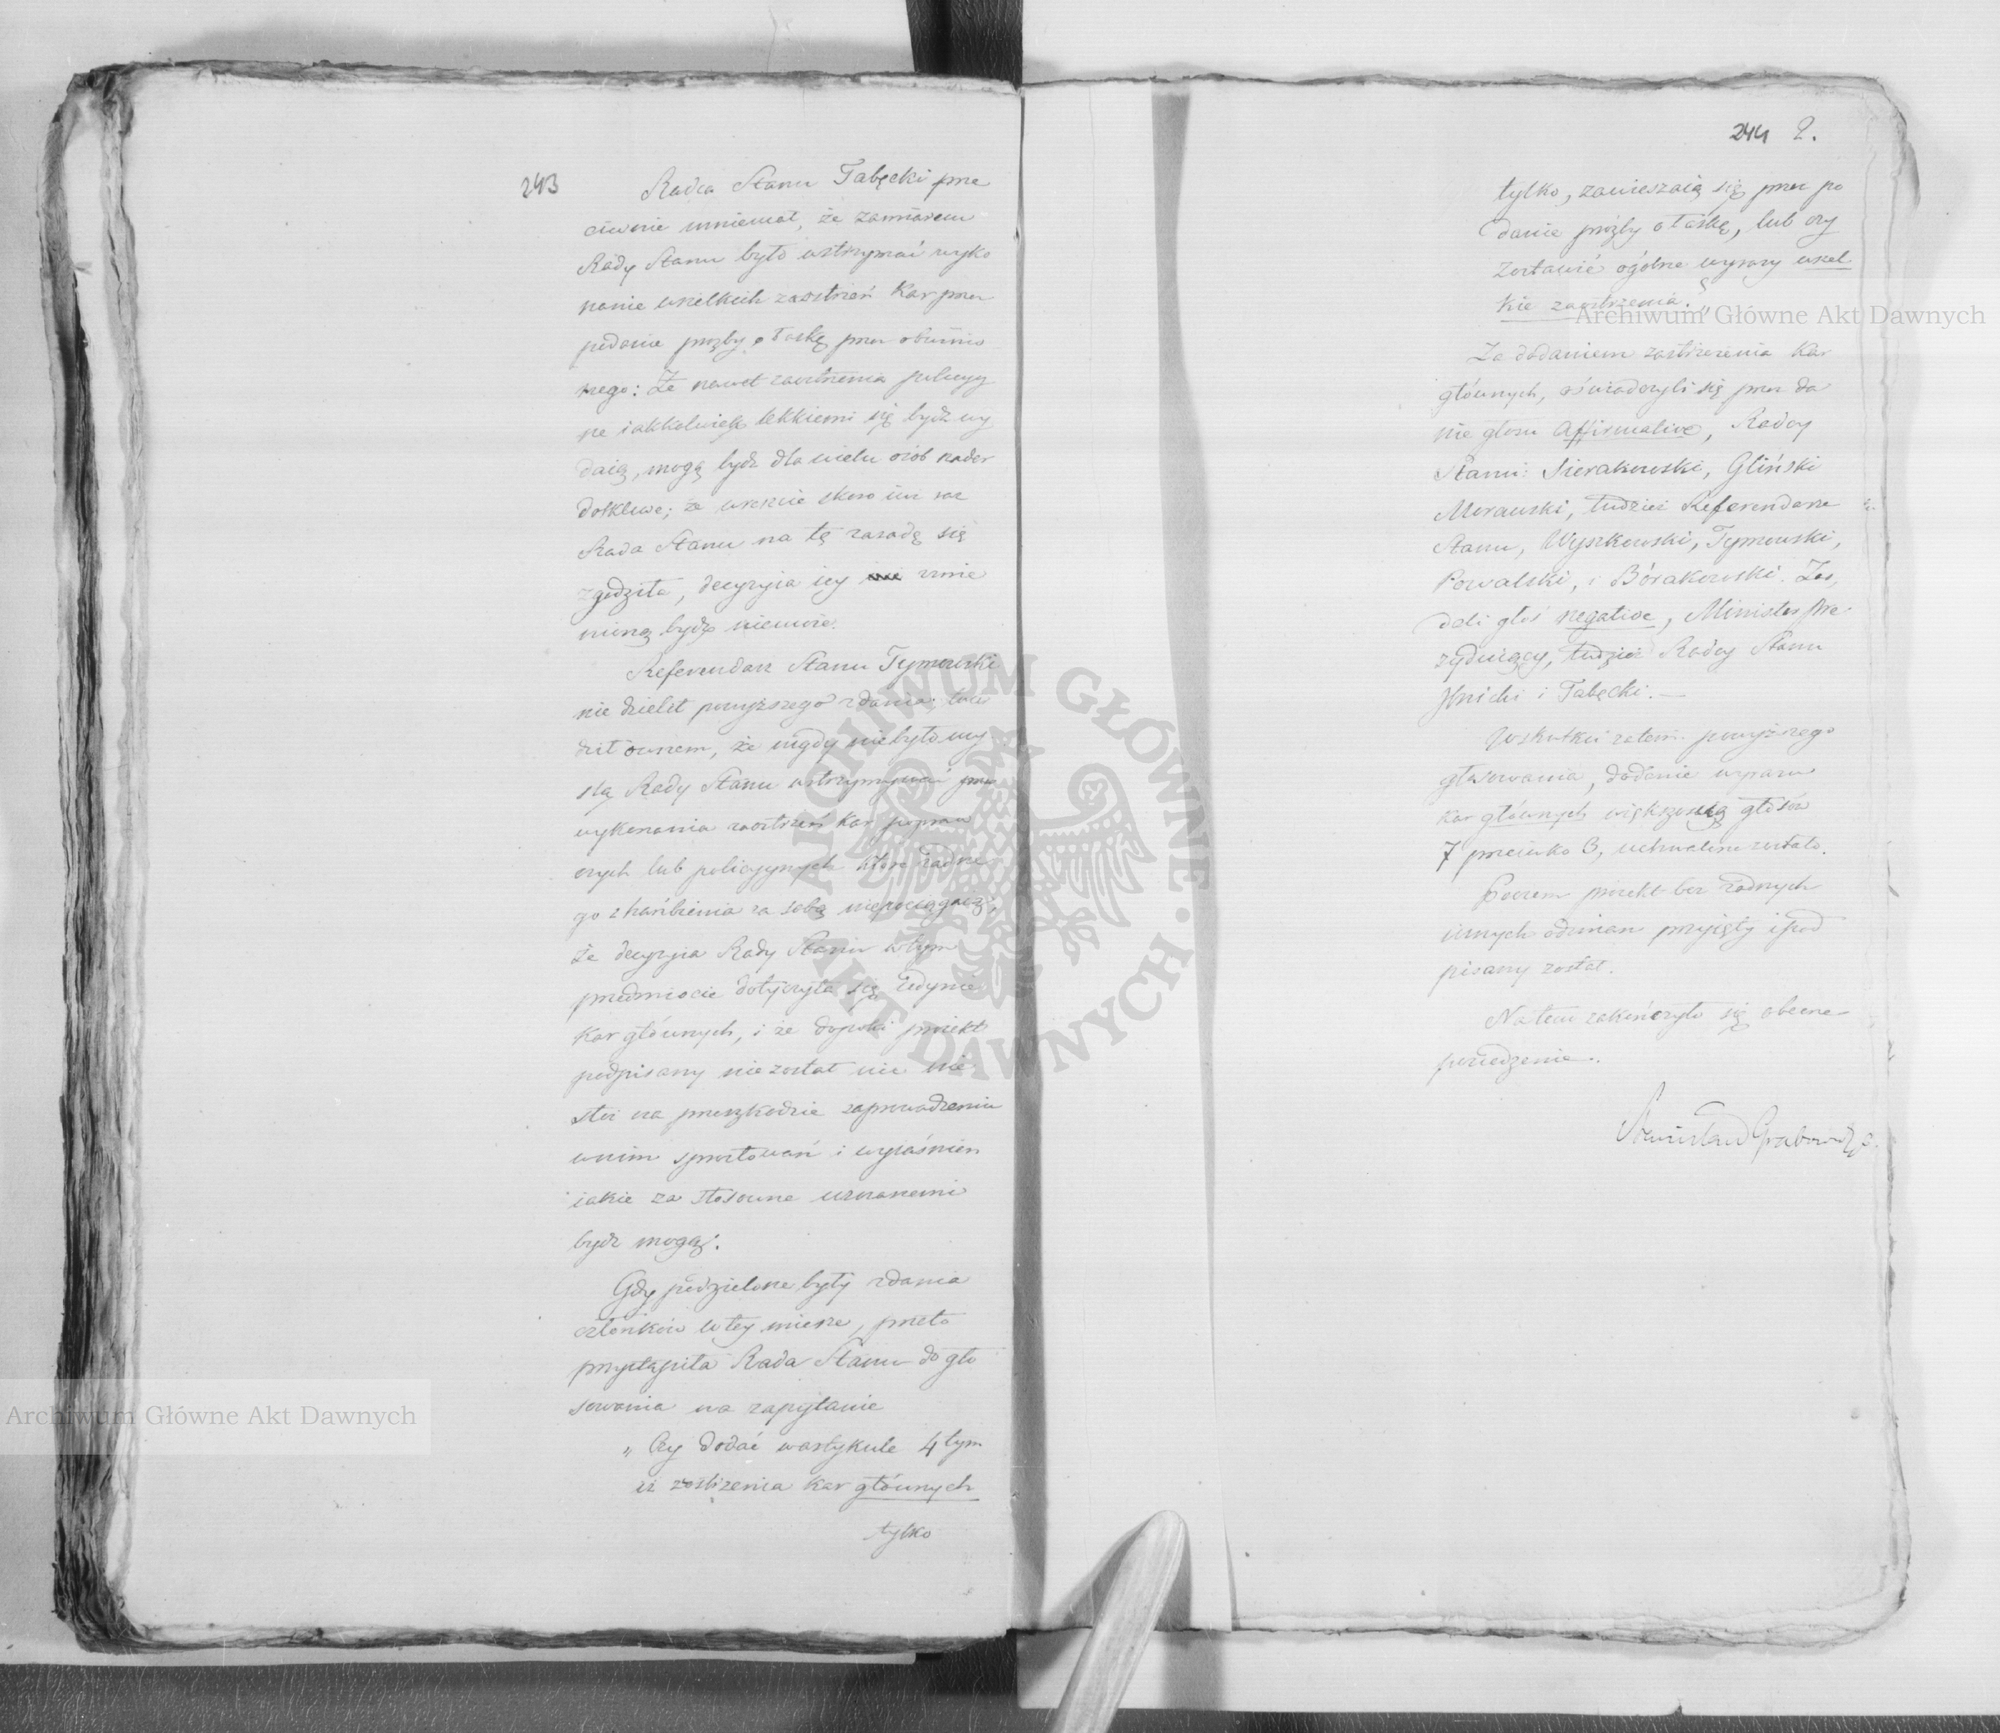 243
Radca Stanu Tabęcki prze
ciwnie mniemał, że zamiarem
Rady Stanu było wstrzymać wyko
nanie wszelkich zaostrzeń Kar przez
podanie prośby o łaskę przez obwinio
nego: Że nawet zaostrzenia policyy
ne iakkolwiek lekkiemi się bydź wy
daią, mogą bydź dla wielu osób nader
dotkliwe; że wreszcie skoro iuż raz
Rada Stanu na tę zasadę się
zgodziła, decyzyia iey zmie
nioną bydź niemoże.
Referendarz Stanu Tymowski
nie dzielił powyższego zdania; twier
dził owszem, że nigdy niebyło my
slą Rady Stanu wstrzymywać
wykonania zaostrzeń Kar popraw
czych lub policyynych które żadne
go zhańbienia za sobą niepociągaią,
że decyzyia Rady Stanu w tym
przedmiocie dotyczyła się iedynie
Kar głównych, i że dopóki proiekt
podpisany nie został nic nie
stoi na przeszkodzie zaprowadzeniu
w nim sprostowań i wyiaśnień
iakie za stosowne uznanemi
bydź mogą.
Gdy podzielone były zdania
członków w tey mierze, przeto
przystąpiła Rada Stanu do gło
sowania na zapytanie
„ Czy dodać w artykule 4tym
iż zaostrzenia Kar głównych
tylko
244 2.
tylko, zawieszaią się przez po
danie prośby o łaskę, lub czy
zostawić ogólne wyrazy wszel
kie zaostrzenia. „
Za dodaniem zaostrzenia Kar
głównych, oświadczyli się przez da
nie głosu affirmative, Radcy
Stanu: Sierakowski, Gliński
Morawski, tudzież Referendarze
Stanu, Wyszkowski, Tymowski,
Kowalski, i Bórakowski. Zaś
dali głos negative, Minister Pre
zyduiący, tudzież Radcy Stanu
i Tabęcki. —
W skutku zatem powyższego
głosowania, dodanie wyrazu
Kar głównych większością głosów
7 przeciwko 3, uchwalone zostało.
Poczem proiekt bez żadnych
innych odmian przyięty i pod
pisany został.
Na tem zakończyło się obecne
posiedzenie.
Stanisław Grabowski
Archiwum Główne Akt Dawnych
Archiwum Główne Akt Dawnych
ARCHIWUM GŁÓWNE AKT DAWNYCH